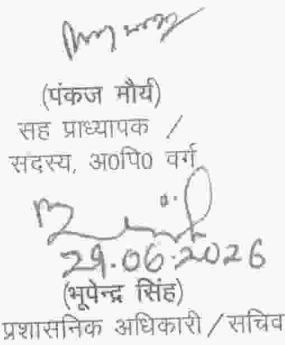 (पंकज मौर्य)
सह प्राध्यापक /
सदस्य, अ0पि0 वर्ग
29.06.2026
(भूपेन्द्र सिंह)
प्रशासनिक अधिकारी / सचिव